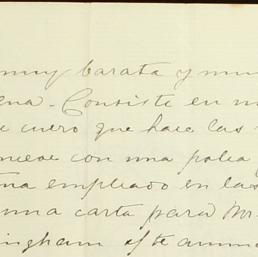 muy barata y mu
ena. Consiste en u
e cuero que hace las
mueve con una polea
ña empleado en las
una carta para Mr.
ingham si te anim